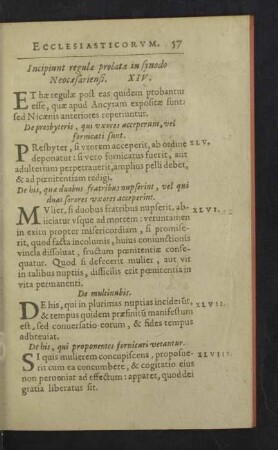 ECCLESIASTICORVM. 57
Incipiunt regulæ probatæ in synodo
Neocæsariensi. XIV.
ET hæ regulæ post eas quidem probantur
esse, quæ apud Ancyram expositæ sunt:
sed Nicænis anteriores reperiuntur.
De presbyteris, qui vxores acceperunt, vel
fornicati sunt.
PResbyter, si vxorem acceperit, ab ordine XLV.
deponatur: si vero fornicatus fuerit, aut
adulterium perpetrauerit, amplius pelli debet,
& ad pœnitentiam redigi.
De his, quæ duobus fratribus nupserint, vel qui
duas sorores vxores acceperint.
MVlier, si duobus fratribus nupserit, ab- XLVI.
iiciatur vsque ad mortem: verumtamen
in exitu propter misericordiam, si promise-
rit, quod facta incolumis, huius coniunctionis
vincla dissoluat, fructum pœnitentiæ conse-
quatur. Quod si defecerit mulier, aut vir
in talibus nuptiis, difficilis erit pœnitentia in
vita permanenti.
De multinubis.
DE his, qui in plurimas nuptias inciderūt, XLVII.
& tempus quidem præfinitū manifestum
est, sed conuersatio eorum, & fides tempus
adbreuiat.
De his, qui proponentes fornicari vetantur.
SI quis mulierem concupiscens, proposue- XLVIII.
rit cum ea concumbere, & cogitatio eius
non perueniat ad effectum: apparet, quod dei
gratia liberatus sit.